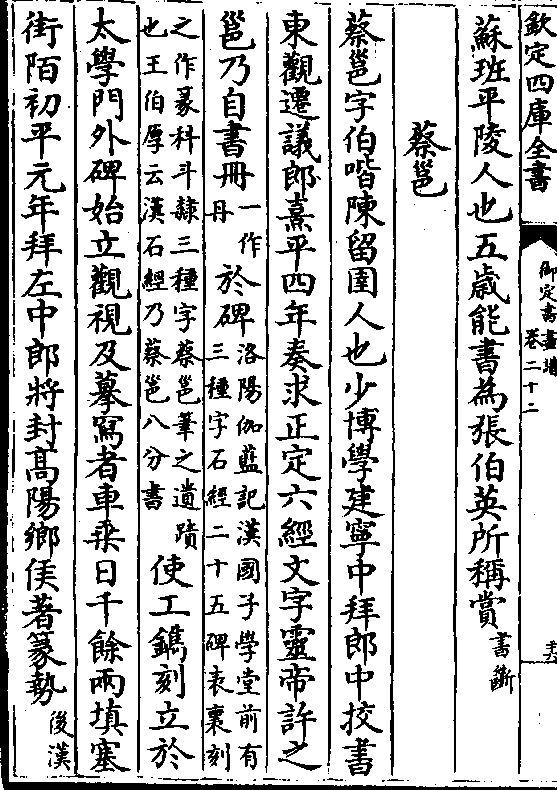 欽定四庫全書
御定書畫譜
卷二十二
蘇班平陵人也五歲能書為張伯英所稱賞書斷
蔡邕
蔡邕字伯喈陳留圉人也少博學建寧中拜郎中挍書
東觀遷議郎熹平四年奏求正定六經文字靈帝許之
邕乃自書冊一作丹於碑洛陽伽藍記漢國子學堂前有三種字石經二十五碑表裏刻
之作篆科斗隸三種字蔡邕筆之遺蹟也王伯厚云漢石經乃蔡邕八分書使工鐫刻立於
太學門外碑始立觀視及摹寫者車乗日千餘兩填塞
街陌初平元年拜左中郎將封髙陽鄉侯著篆勢後漢